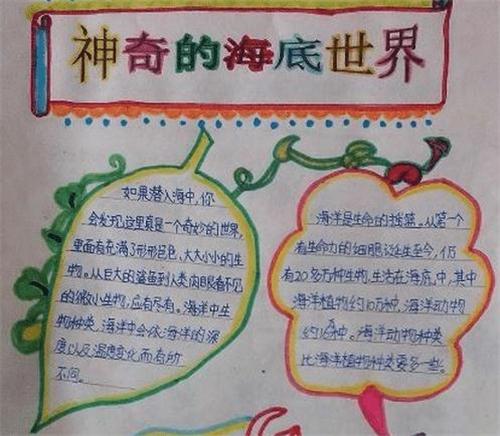 神奇的海底世界
如果潜入海中,你
会发现这里真是一个奇妙的世界,
里面有充满了形形色色、大大小小的生
物。从巨大的鲨鱼到人类肉眼看不见
的微小生物,应有尽有。海洋中生
物种类,海洋中会依海洋的深
度以及温度变化而有所
不同。
海洋是生命的摇篮。从第一个
有生命力的细胞诞生至今,仍
有20多万种生物生活在海底中,其中
海洋植物约10万种,海洋动物
约16种。海洋动物种类
比海洋植物种类要多一些。